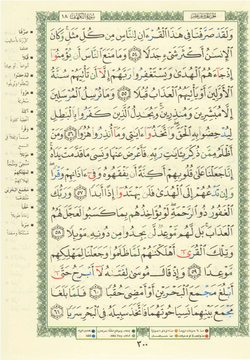 سورة الكهف ١٨
وَلَقَدْ صَرَّفْنَا فِي هَٰذَا الْقُرْءَانِ لِلنَّاسِ مِن كُلِّ مَثَلٍ وَكَانَ
الْإِنسَٰنُ أَكْثَرَ شَيْءٍ جَدَلًا ٥٤ وَمَا مَنَعَ النَّاسَ أَن يُؤْمِنُوا
إِذْ جَاءَهُمُ الْهُدَىٰ وَيَسْتَغْفِرُوا رَبَّهُمْ إِلَّا أَن تَأْتِيَهُمْ سُنَّةُ
الْأَوَّلِينَ أَوْ يَأْتِيَهُمُ الْعَذَابُ قُبُلًا ٥٥ وَمَا نُرْسِلُ الْمُرْسَلِينَ
إِلَّا مُبَشِّرِينَ وَمُنذِرِينَ وَيُجَٰدِلُ الَّذِينَ كَفَرُوا بِالْبَٰطِلِ
لِيُدْحِضُوا بِهِ الْحَقَّ وَاتَّخَذُوا ءَايَٰتِي وَمَا أُنذِرُوا هُزُوًا ٥٦ وَمَنْ
أَظْلَمُ مِمَّن ذُكِّرَ بِـَٔايَٰتِ رَبِّهِ فَأَعْرَضَ عَنْهَا وَنَسِيَ مَا قَدَّمَتْ يَدَاهُ
إِنَّا جَعَلْنَا عَلَىٰ قُلُوبِهِمْ أَكِنَّةً أَن يَفْقَهُوهُ وَفِي ءَاذَانِهِمْ وَقْرًا
وَإِن تَدْعُهُمْ إِلَى الْهُدَىٰ فَلَن يَهْتَدُوا إِذًا أَبَدًا ٥٧ وَرَبُّكَ
الْغَفُورُ ذُو الرَّحْمَةِ لَوْ يُؤَاخِذُهُم بِمَا كَسَبُوا لَعَجَّلَ لَهُمُ
الْعَذَابَ بَل لَّهُم مَّوْعِدٌ لَّن يَجِدُوا مِن دُونِهِ مَوْئِلًا ٥٨
وَتِلْكَ الْقُرَىٰ أَهْلَكْنَٰهُمْ لَمَّا ظَلَمُوا وَجَعَلْنَا لِمَهْلِكِهِم
مَّوْعِدًا ٥٩ وَإِذْ قَالَ مُوسَىٰ لِفَتَىٰهُ لَا أَبْرَحُ حَتَّىٰ
أَبْلُغَ مَجْمَعَ الْبَحْرَيْنِ أَوْ أَمْضِيَ حُقُبًا ٦٠ فَلَمَّا بَلَغَا
مَجْمَعَ بَيْنِهِمَا نَسِيَا حُوتَهُمَا فَاتَّخَذَ سَبِيلَهُ فِي الْبَحْرِ سَرَبًا ٦١
٣٠٠